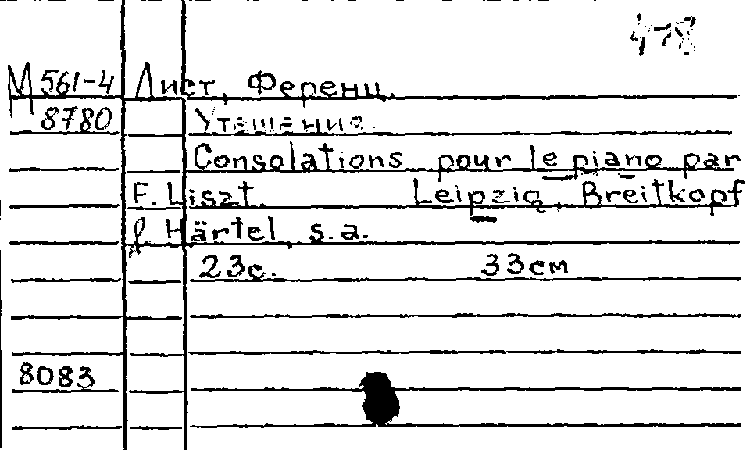 478
М 561-4 Лист, Ференц.
8780 Утешение.
Consolations pour le piano par
F. Liszt. Leipzig, Breitkopf
& Härtel, s.a.
23с. 33см
8083